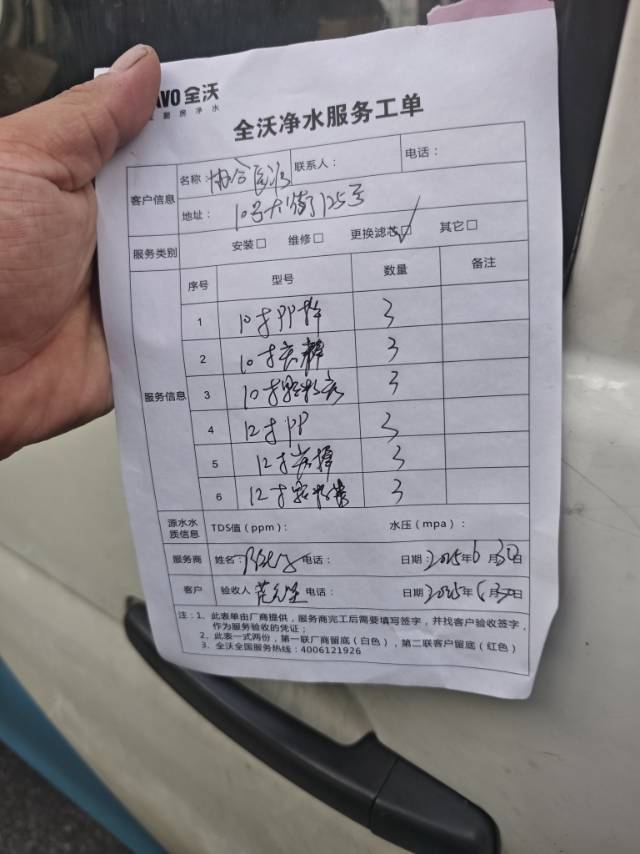 AVO 全沃
厨房净水
全沃净水服务工单
客户信息 名称：协合医院 联系人： 电话：
地址：10号大街125号
服务类别 安装□ 维修□ 更换滤芯□✓ 其它□
服务信息 序号 型号 数量 备注
1 10寸PP棉 3
2 10寸炭棒 3
3 10寸颗粒炭 3
4 12寸PP 3
5 12寸炭棒 3
6 12寸颗粒炭 3
源水水质信息 TDS值（ppm）： 水压（mpa）：
服务商 姓名： 电话： 日期：2025年6月30日
客户 验收人 电话： 日期：2025年6月30日
注：1、此表单由厂商提供，服务商完工后需要填写签字，并找客户验收签字，
作为服务验收的凭证；
2、此表一式两份，第一联厂商留底（白色），第二联客户留底（红色）
3、全沃全国服务热线：4006121926